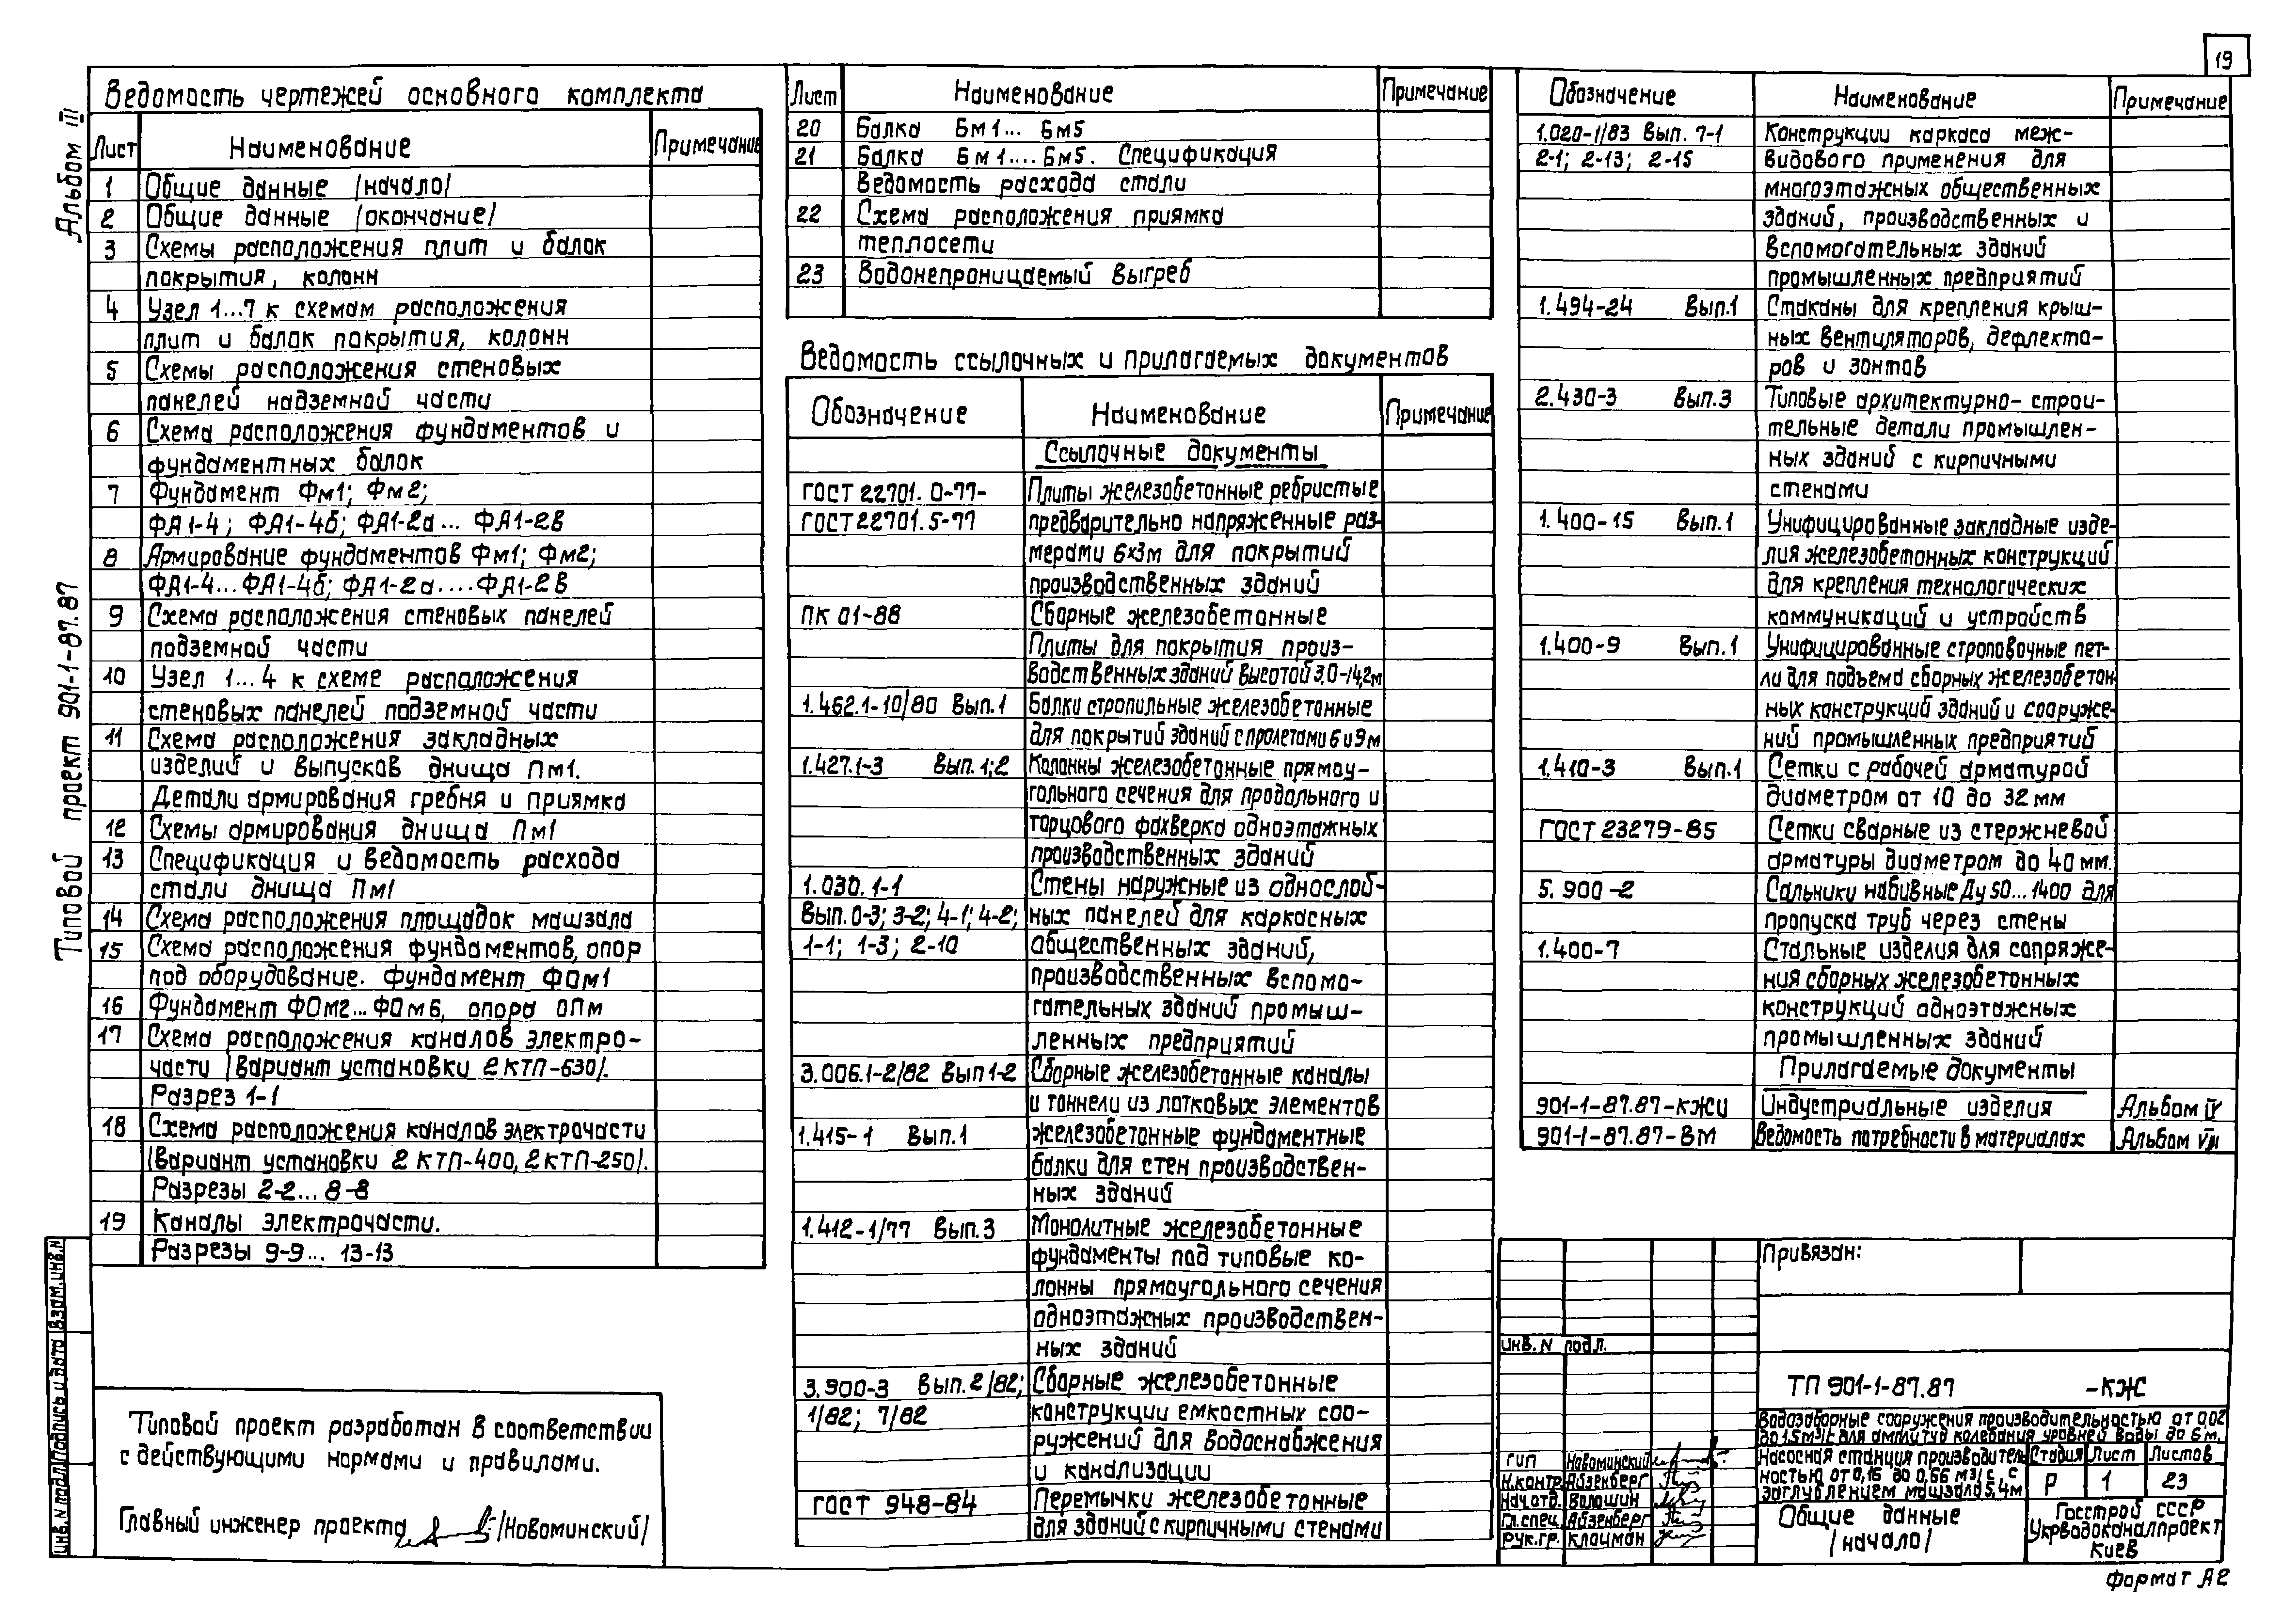 19
Альбом III
Типовой проект 901-1-87.87
Ведомость чертежей основного комплекта
Лист Наименование Примечание
1 Общие данные /начало/
2 Общие данные /окончание/
3 Схемы расположения плит и балок
покрытия, колонн
4 Узел 1...7 к схемам расположения
плит и балок покрытия, колонн
5 Схемы расположения стеновых
панелей надземной части
6 Схема расположения фундаментов и
фундаментных балок
7 Фундамент Фм1; Фм2;
ФА1-4; ФА1-4б; ФА1-2а... ФА1-2в
8 Армирование фундаментов Фм1; Фм2;
ФА1-4...ФА1-4б; ФА1-2а....ФА1-2в
9 Схема расположения стеновых панелей
подземной части
10 Узел 1...4 к схеме расположения
стеновых панелей подземной части
11 Схема расположения закладных
изделий и выпусков днища Пм1.
Детали армирования гребня и приямка
12 Схемы армирования днища Пм1
13 Спецификация и ведомость расхода
стали днища Пм1
14 Схема расположения площадок машзала
15 Схема расположения фундаментов, опор
под оборудование. Фундамент ФОм1
16 Фундамент ФОм2...ФОм6, опора ОПм
17 Схема расположения каналов электро-
части /вариант установки 2КТП-630/.
Разрез 1-1
18 Схема расположения каналов электрочасти
/вариант установки 2КТП-400, 2КТП-250/.
Разрезы 2-2...8-8
19 Каналы электрочасти.
Разрезы 9-9...13-13
Типовой проект разработан в соответствии
с действующими нормами и правилами.
Главный инженер проекта /Новоминский/
Взам.инв.N
Подпись и дата
Инв.N подл.
Лист Наименование Примечание
20 Балка Бм1... Бм5
21 Балка Бм1....Бм5. Спецификация
Ведомость расхода стали
22 Схема расположения приямка
теплосети
23 Водонепроницаемый выгреб
Ведомость ссылочных и прилагаемых документов
Обозначение Наименование Примечание
Ссылочные документы
ГОСТ 22701.0-77- Плиты железобетонные ребристые
ГОСТ 22701.5-77 предварительно напряженные раз-
мерами 6х3м для покрытий
производственных зданий
ПК 01-88 Сборные железобетонные
Плиты для покрытия произ-
водственных зданий высотой 3,0-14,2м
1.462.1-10/80 Вып.1 Балки стропильные железобетонные
для покрытий зданий с пролетами 6 и 9м
1.427.1-3 Вып.1;2 Колонны железобетонные прямоу-
гольного сечения для продольного и
торцового фахверка одноэтажных
производственных зданий
1.030.1-1 Стены наружные из однослой-
Вып.0-3; 3-2; 4-1; 4-2; ных панелей для каркасных
1-1; 1-3; 2-10 общественных зданий,
производственных вспомо-
гательных зданий промыш-
ленных предприятий
3.006.1-2/82 Вып 1-2 Сборные железобетонные каналы
и тоннели из лотковых элементов
1.415-1 Вып.1 Железобетонные фундаментные
балки для стен производствен-
ных зданий
1.412-1/77 Вып.3 Монолитные железобетонные
фундаменты под типовые ко-
лонны прямоугольного сечения
одноэтажных производствен-
ных зданий
3.900-3 Вып.2/82; Сборные железобетонные
1/82; 7/82 конструкции емкостных соо-
ружений для водоснабжения
и канализации
ГОСТ 948-84 Перемычки железобетонные
для зданий с кирпичными стенами
Обозначение Наименование Примечание
1.020-1/83 Вып. 7-1 Конструкции каркаса меж-
2-1; 2-13; 2-15 видового применения для
многоэтажных общественных
зданий, производственных и
вспомогательных зданий
промышленных предприятий
1.494-24 Вып.1 Стаканы для крепления крыш-
ных вентиляторов, дефлекто-
ров и зонтов
2.430-3 Вып.3 Типовые архитектурно-строи-
тельные детали промышлен-
ных зданий с кирпичными
стенами
1.400-15 Вып.1 Унифицированные закладные изде-
лия железобетонных конструкций
для крепления технологических
коммуникаций и устройств
1.400-9 Вып.1 Унифицированные строповочные пет-
ли для подъема сборных железобетон
ных конструкций зданий и сооруже-
ний промышленных предприятий
1.410-3 Вып.1 Сетки с рабочей арматурой
диаметром от 10 до 32мм
ГОСТ 23279-85 Сетки сварные из стержневой
арматуры диаметром до 40мм.
5.900-2 Сальники набивные Ду 50...1400 для
пропуска труб через стены
1.400-7 Стальные изделия для сопряже-
ния сборных железобетонных
конструкций одноэтажных
промышленных зданий
Прилагаемые документы
901-1-87.87-КЖИ Индустриальные изделия Альбом IV
901-1-87.87-ВМ Ведомость потребности в материалах Альбом VIII
Привязан:
Инв.N подл.
ТП 901-1-87.87 -КЖ
Водозаборные сооружения производительностью от 0,02
до 1,5м3/с для амплитуд колебания уровней воды до 6м.
Насосная станция производитель Стадия Лист Листов
ностью от 0,16 до 0,66 м3/с, с Р 1 23
заглублением машзала 5,4м
ГИП Новоминский
Н.контр Айзенберг
Нач.отд. Волошин
Гл.спец. Айзенберг
Рук.гр. Клоцман
Общие данные
/начало/
Госстрой СССР
Укрводоканалпроект
Киев
Формат А2